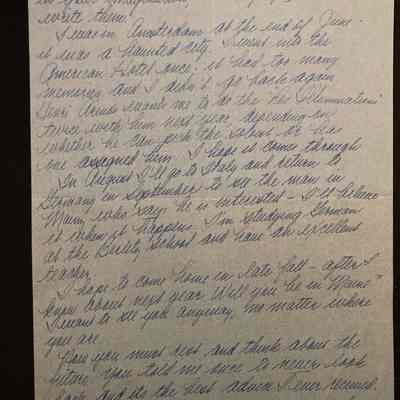 in your imagination,
write them!
I was in Amsterdam at the end of June -
it was a haunted city. I went into the
American Hotel once; it had too many
memories and I didn't go back again
wants me to do the "Les Illuminations"
twice with him next year, depending on
whether he can get the talent he has
one assigned him. I hope it comes through
In August I'll go to Italy and return to
Germany in September to see the man in
who says he is interested - I'll believe
it when it happens. I'm studying German
at the Berlitz School and have an excellent
teacher.
I hope to come home in late fall - after I
know about next year. Will you be in Maine?
I want to see you anyway, no matter where
you are.
Now you must rest and think about the
future. You told me once to never look
back and its the best advice I ever received.